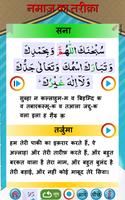 नमाज का तरीका
सना
سُبْحٰنَكَ اللّٰهُمَّ وَبِحَمْدِكَ
وَتَبَارَكَ اسْمُكَ وَتَعَالٰى جَدُّكَ
وَلَآ اِلٰهَ غَيْرُكَ
सुब्हा न कल्लाहुम-म व बिहम्दि क
व तबारकस्मु-क व तआला जददु-क
व ला इला ह ग़ैरूक
तर्जुमा
हम तेरी पाकी का इकरार करते हैं, और
तेरी तारीफ़ बयान करते हैं, और बहुत बरकत
वाला है तेरा नाम, और बहुत बुलंद है तेरी